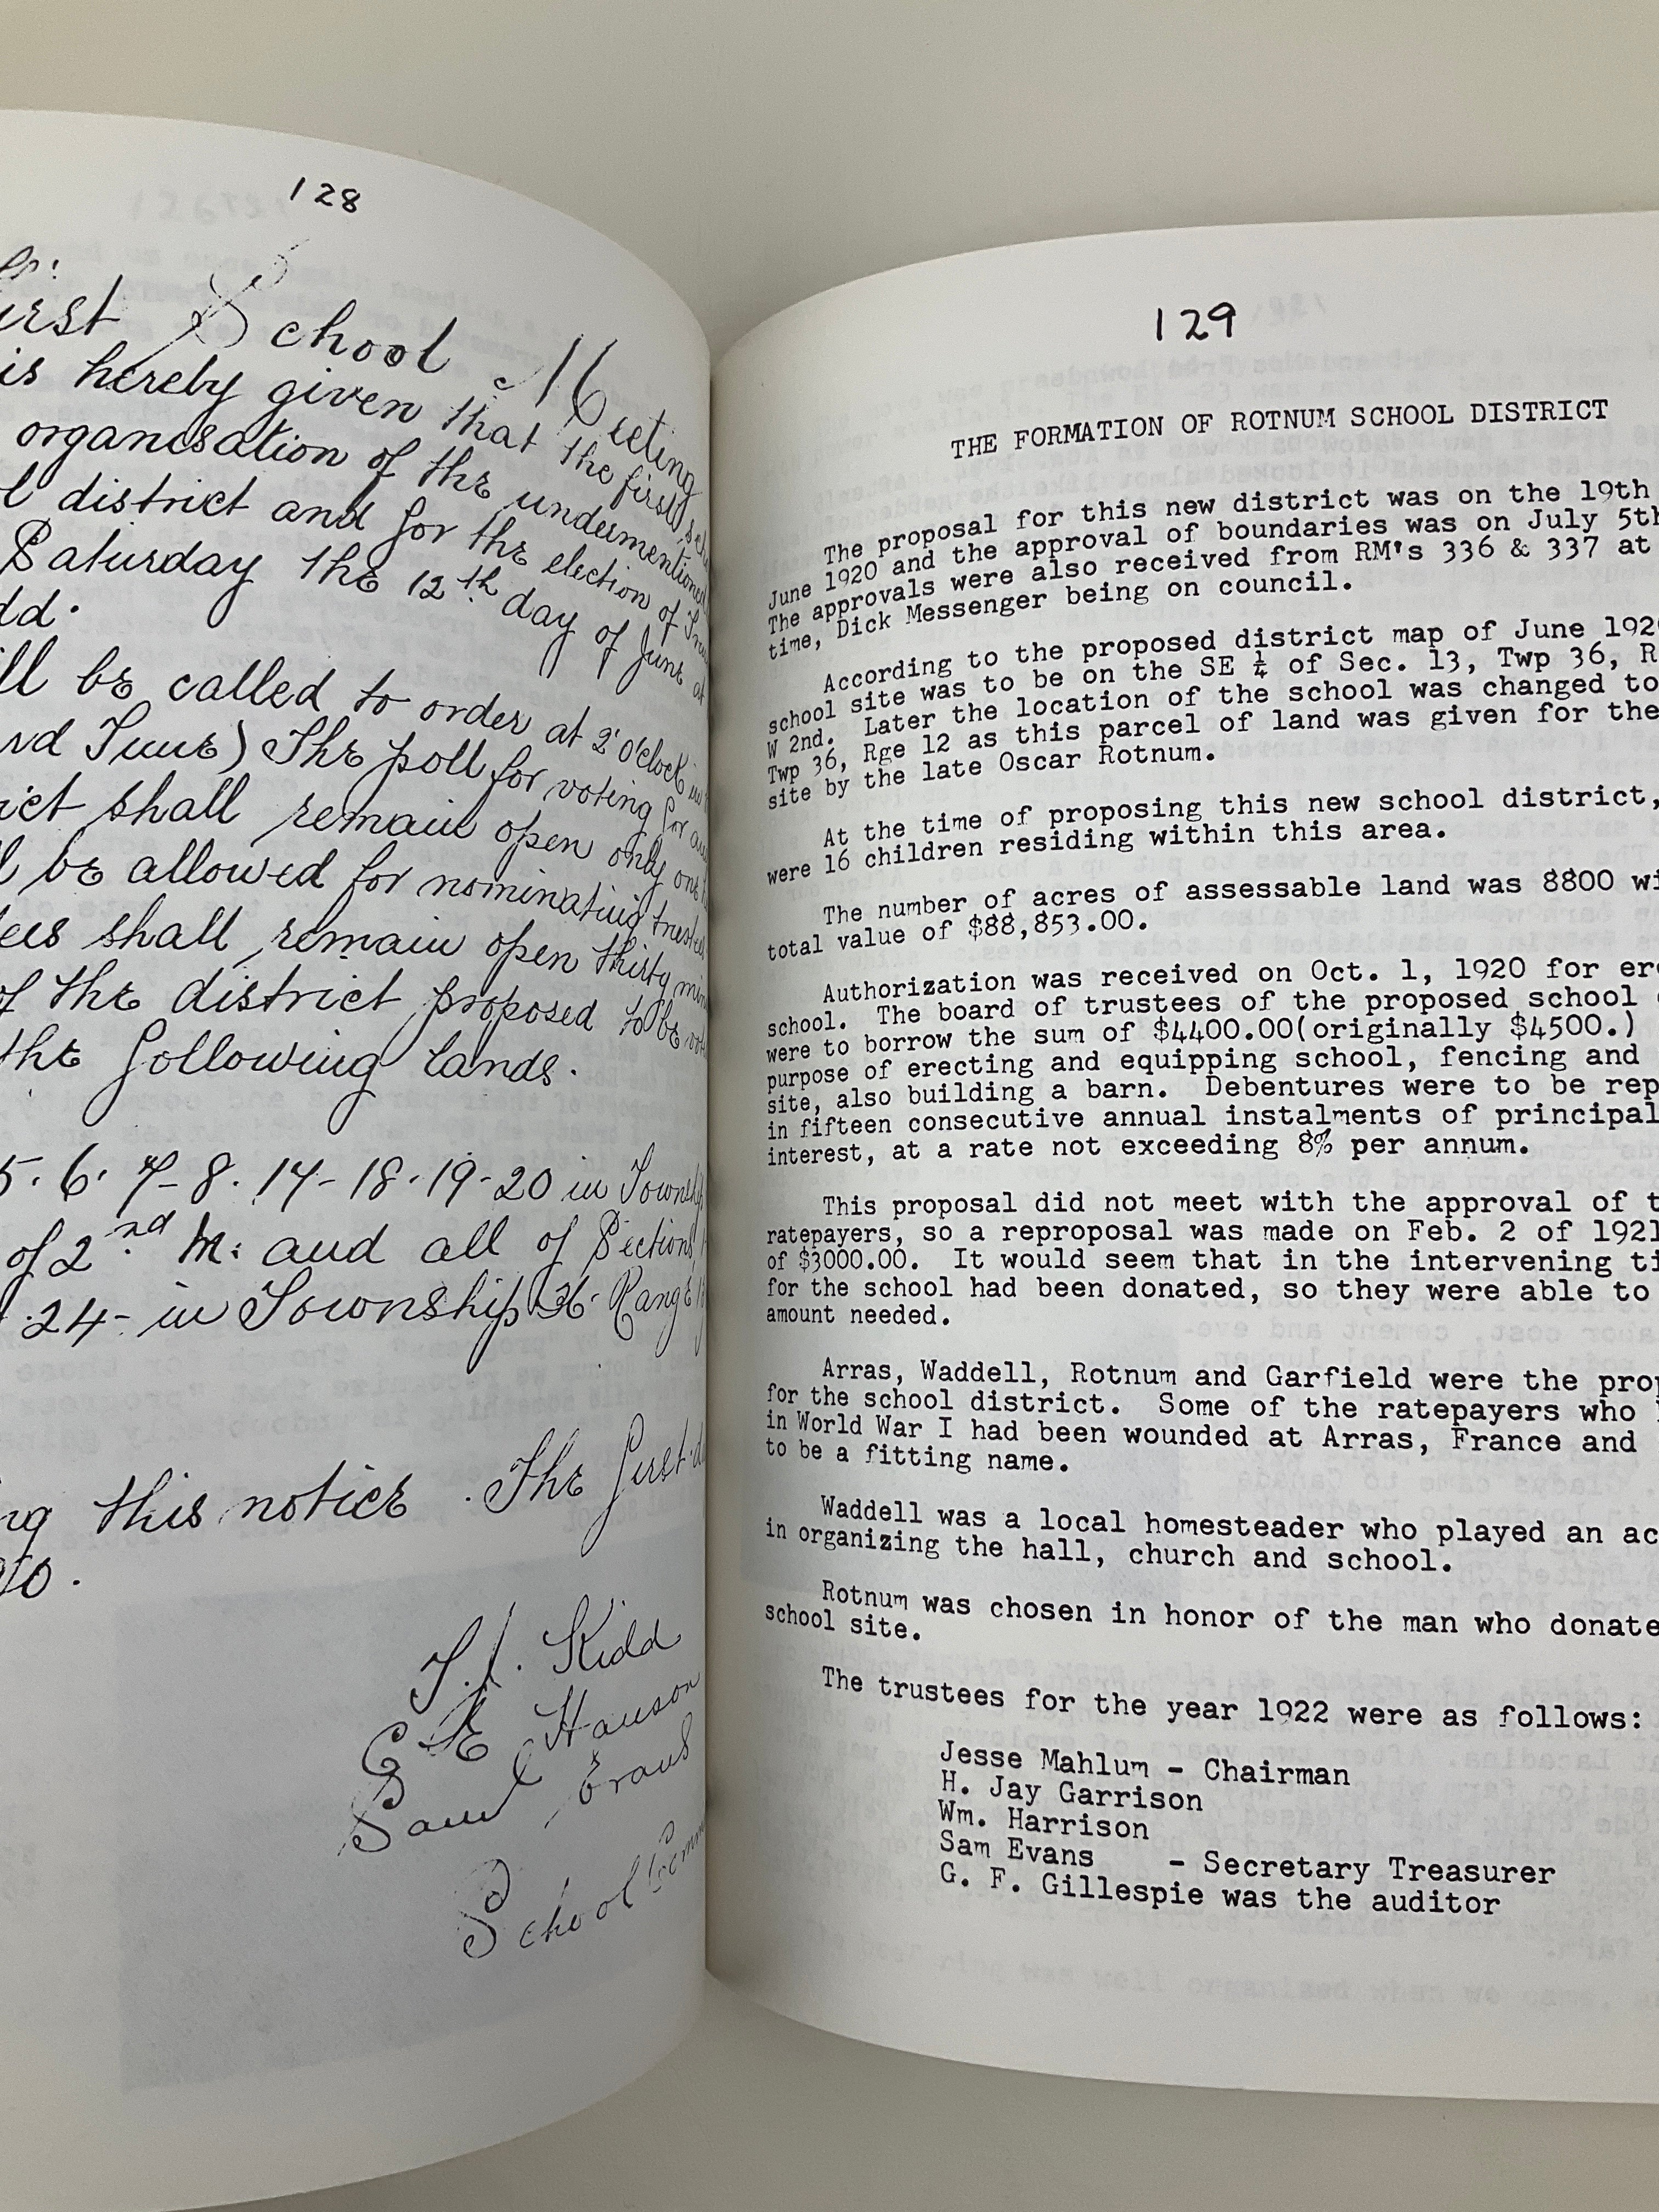 128
First School Meeting
is hereby given that the first
organisation of the undermentioned
district and for the election of
Saturday the 12th day of June at
be called to order at 2 o'clock
The poll for voting for
shall remain open only one
be allowed for nominating trustees
shall remain open thirty
of the district proposed to be
the following lands.
5. 6. 7- 8. 17- 18. 19- 20 in Township
of 2nd M: and all of Sections
24- in Township 36. Range
this notice. The first
T. J. Kidd
G E Hanson
Saml Evans
School
129
THE FORMATION OF ROTNUM SCHOOL DISTRICT
The proposal for this new district was on the 19th
June 1920 and the approval of boundaries was on July 5th
The approvals were also received from RM's 336 & 337 at
time, Dick Messenger being on council.
According to the proposed district map of June
school site was to be on the SE ¼ of Sec. 13, Twp 36,
W 2nd. Later the location of the school was changed to
Twp 36, Rge 12 as this parcel of land was given for the
site by the late Oscar Rotnum.
At the time of proposing this new school district,
were 16 children residing within this area.
The number of acres of assessable land was 8800
total value of $88,853.00.
Authorization was received on Oct. 1, 1920 for
school. The board of trustees of the proposed school
were to borrow the sum of $4400.00(originally $4500.)
purpose of erecting and equipping school, fencing and
site, also building a barn. Debentures were to be
in fifteen consecutive annual instalments of principal
interest, at a rate not exceeding 8% per annum.
This proposal did not meet with the approval of
ratepayers, so a reproposal was made on Feb. 2 of 1921
of $3000.00. It would seem that in the intervening
for the school had been donated, so they were able to
amount needed.
Arras, Waddell, Rotnum and Garfield were the
for the school district. Some of the ratepayers who
in World War I had been wounded at Arras, France and
to be a fitting name.
Waddell was a local homesteader who played an
in organizing the hall, church and school.
Rotnum was chosen in honor of the man who
school site.
The trustees for the year 1922 were as follows:
Jesse Mahlum - Chairman
H. Jay Garrison
Wm. Harrison
Sam Evans - Secretary Treasurer
G. F. Gillespie was the auditor